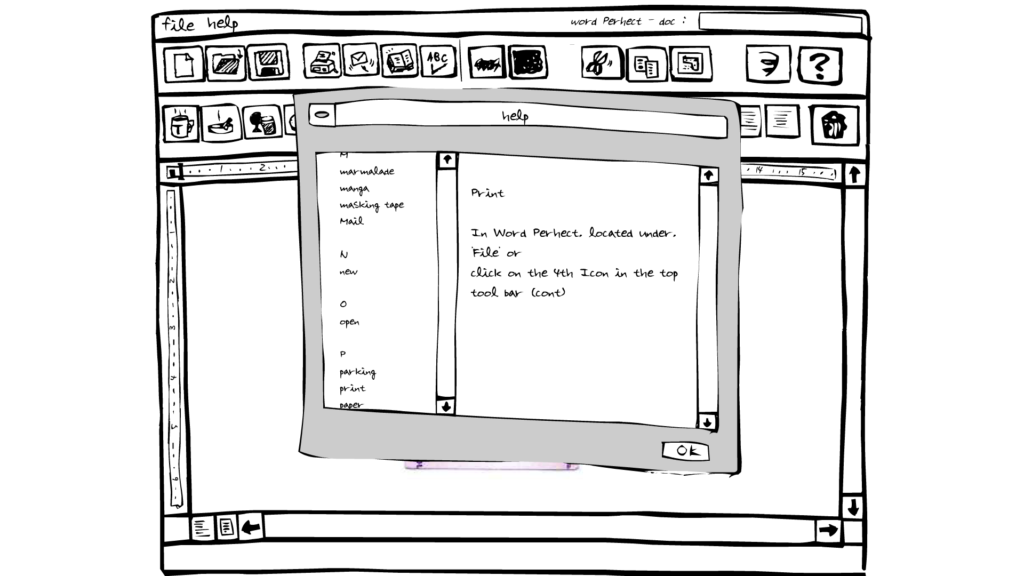 file help
word Perhect - doc :
ABC
?
T
1 2
14 15
help
M
marmalade
manga
masking tape
Mail
N
new
O
open
P
parking
print
paper
Print
In Word Perhect. located under.
'File' or
click on the 4th Icon in the top
tool bar (cont)
OK